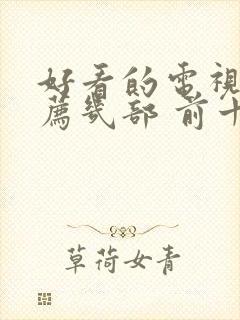 好看的電視
薦幾部 前十
草荷女青